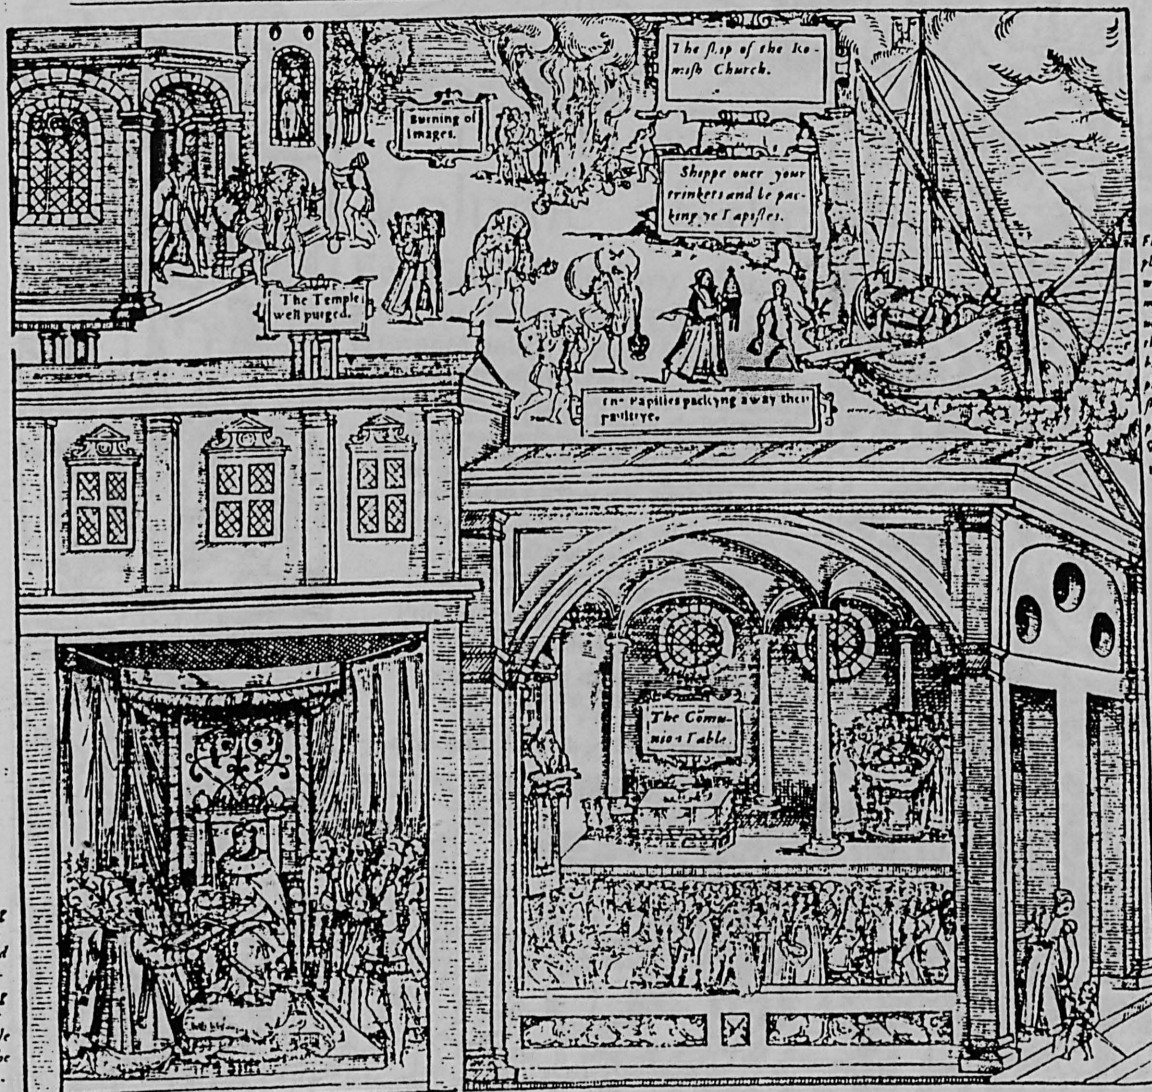 The ship of the Ro-
mish Church.
Burning of
Images.
Shippe ouer your
trinkets and be pac-
king ye Papistes.
The Temple
well purged.
The Papistes packyng away their
paultrye.
The Comu-
nion Table.